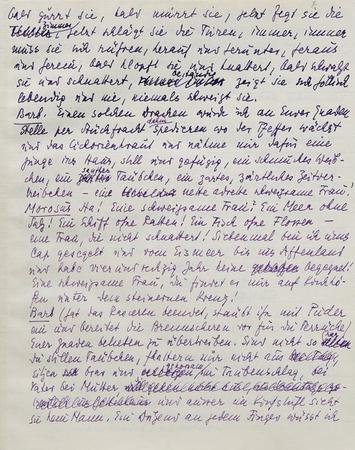 bald girrt sie, bald murrt sie, jetzt fegt sie die
Zimmer, jetzt schlägt sie die Türen, immer, immer
muss sie sich rühren, herauf und herunter, heraus
und herein, bald klopft sie und knattert, bald schwatzt
sie und schnattert, beständig zeigt sie sich
lebendig und nie, niemals schweigt sie.
Barb. Einen solchen Drachen würde ich an Euer Gnaden
Stelle per Stückfracht dahin spedieren wo der Pfeffer wächst
und das Cichorienkraut und nähme mir dafür eine
junge ins Haus, still und gefügig, ein schmuckes Weib-
chen, ein sanftes Täubchen, ein zartes, zärtliches Zeitver-
treibchen – eine nette adrette schweigsame Frau!
Morosus Ha! Eine schweigsame Frau? Ein Meer ohne
Salz! Ein Schiff ohne Ratten! Ein Fisch ohne Flossen –
eine Frau, die nicht schnattert! Siebenmal bin ich ums
Cap gesegelt und vom Eismeer bis ins Affenland
und habe vier und sechzig Jahr keine begegnet!
Eine schweigsame Frau, die findet er nur auf Kirchhö-
fen unter dem steinernen Kreuz!
Barb (hat das Rasieren beendet, stäubt ihn mit Puder
ein und bereitet die Brennscheren vor für die Perrücke)
Euer Gnaden belieben zu übertreiben. Sind nicht so rar
die stillen Täubchen, flattern nur nicht aus
sitzen brav und im Taubenschlag, bei
Vater bei Mutter
und ausser im Kirchstuhl sieht
sie kein Mann. Ein Dutzend an jedem Finger wüsst ich